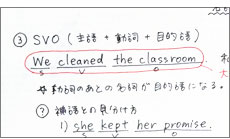 ③ SVO (主語 + 動詞 + 目的語)
We cleaned the classroom.
S V O
動詞のあとの名詞が目的語になる。
② 補語との見分け方
1) she kept her promise.
S V O